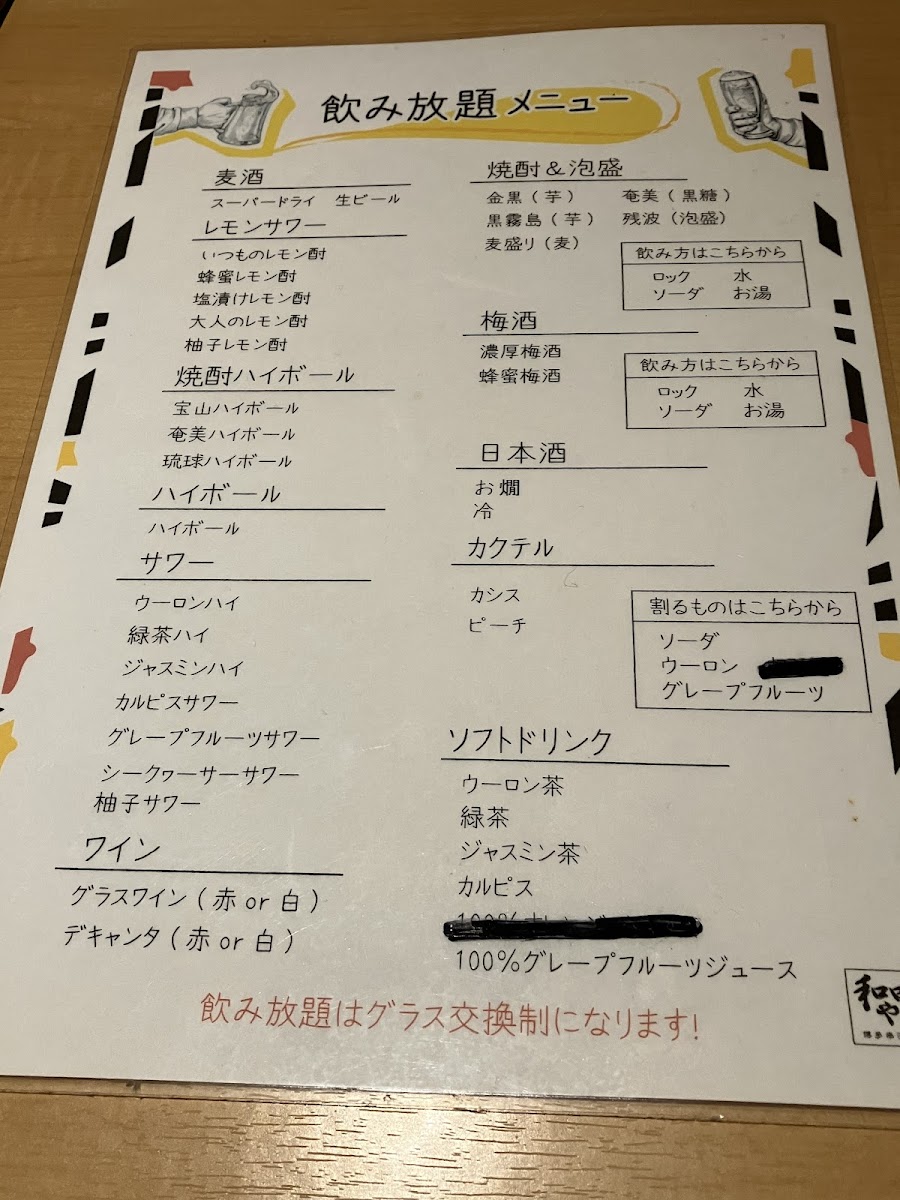 飲み放題メニュー
麦酒
スーパードライ 生ビール
レモンサワー
いつものレモン酎
蜂蜜レモン酎
塩漬けレモン酎
大人のレモン酎
柚子レモン酎
焼酎ハイボール
宝山ハイボール
奄美ハイボール
琉球ハイボール
ハイボール
ハイボール
サワー
ウーロンハイ
緑茶ハイ
ジャスミンハイ
カルピスサワー
グレープフルーツサワー
シークヮーサーサワー
柚子サワー
ワイン
グラスワイン(赤or白)
デキャンタ(赤or白)
焼酎&泡盛
金黒(芋) 奄美(黒糖)
黒霧島(芋) 残波(泡盛)
麦盛り(麦)
飲み方はこちらから
ロック 水
ソーダ お湯
梅酒
濃厚梅酒
蜂蜜梅酒
飲み方はこちらから
ロック 水
ソーダ お湯
日本酒
お燗
冷
カクテル
カシス
ピーチ
割るものはこちらから
ソーダ
ウーロン
グレープフルーツ
ソフトドリンク
ウーロン茶
緑茶
ジャスミン茶
カルピス
100%グレープフルーツジュース
飲み放題はグラス交換制になります!